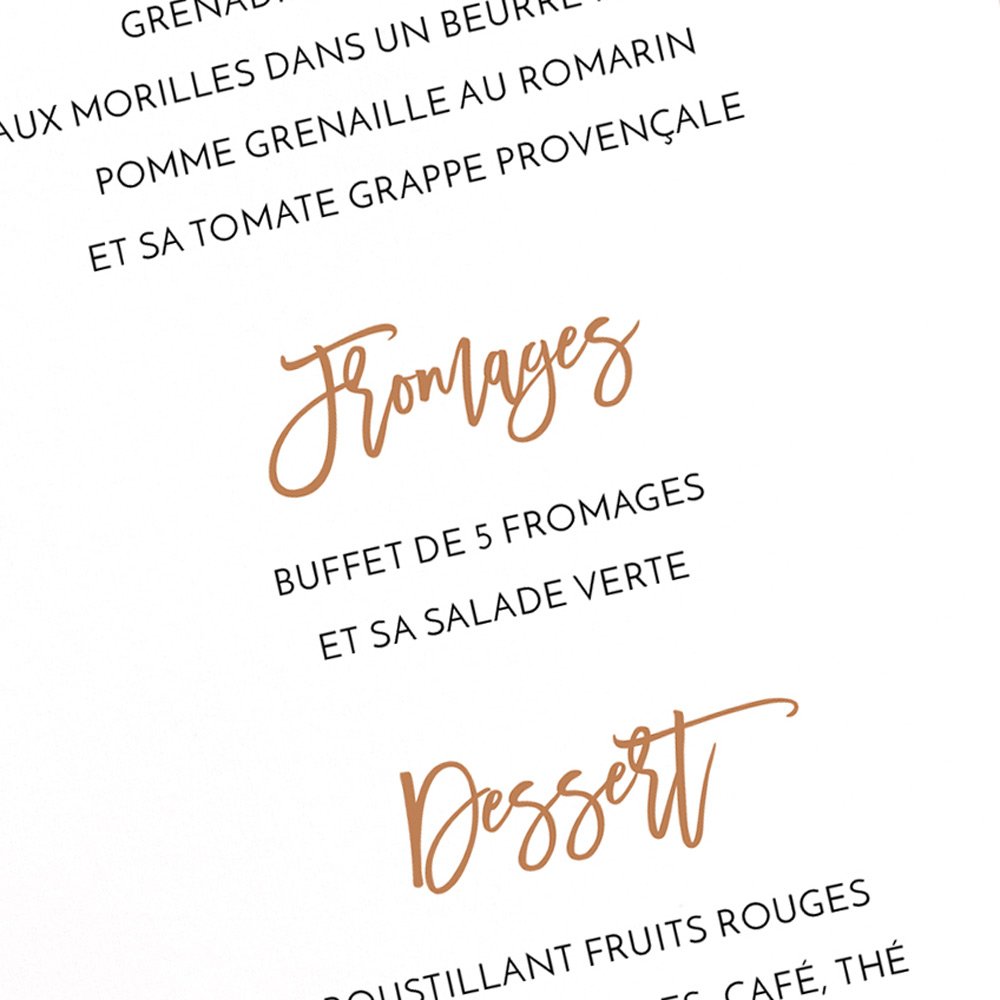 AUX MORILLES DANS UN BEURRE
POMME GRENAILLE AU ROMARIN
ET SA TOMATE GRAPPE PROVENÇALE
Fromages
BUFFET DE 5 FROMAGES
ET SA SALADE VERTE
Dessert
FRUITS ROUGES
CAFÉ, THÉ